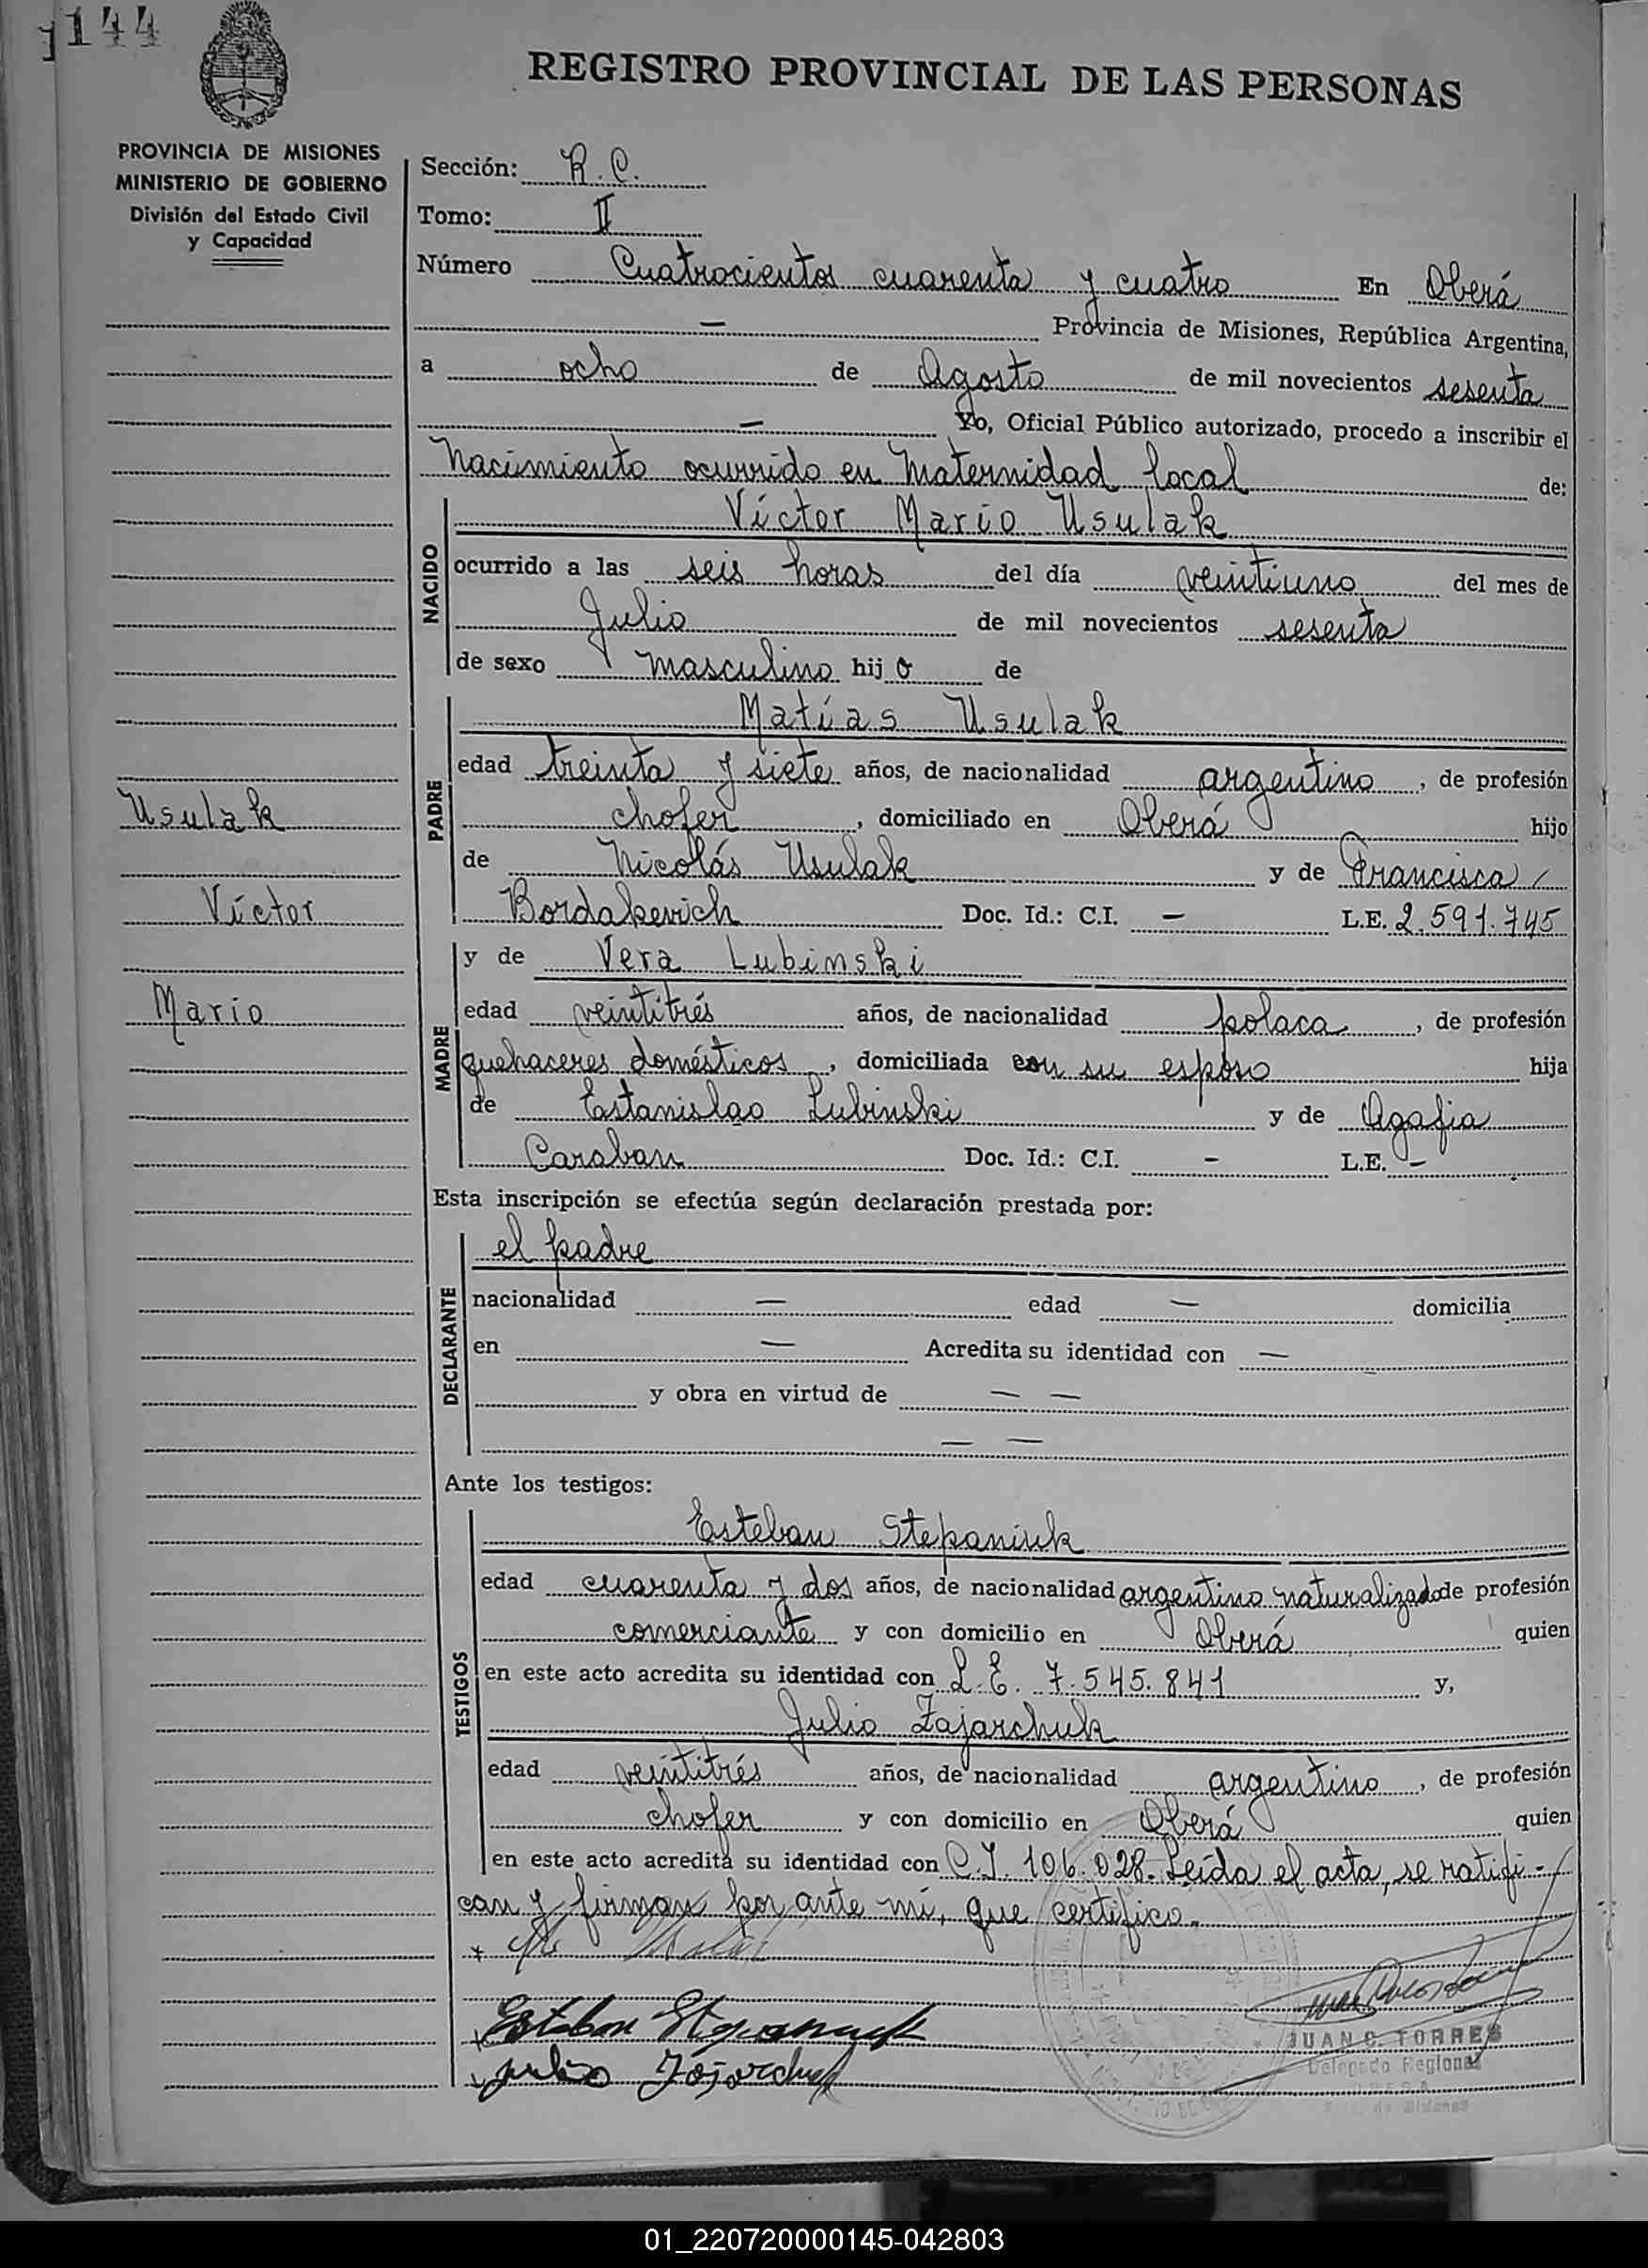 144
REGISTRO PROVINCIAL DE LAS PERSONAS
PROVINCIA DE MISIONES
MINISTERIO DE GOBIERNO
División del Estado Civil
y Capacidad
Sección: R. C.
Tomo: II
Número Cuatrocientos cuarenta y cuatro En Oberá
— Provincia de Misiones, República Argentina,
a ocho de Agosto de mil novecientos sesenta
— Yo, Oficial Público autorizado, procedo a inscribir el
Nacimiento ocurrido en Maternidad local de:
NACIDO
Víctor Mario Usulak
ocurrido a las seis horas del día veintiuno del mes de
Julio de mil novecientos sesenta
de sexo masculino hijo de
PADRE
Matías Usulak
edad treinta y siete años, de nacionalidad argentino, de profesión
chofer, domiciliado en Oberá hijo
de Nicolás Usulak y de Francisca
Bordakevich Doc. Id.: C.I. — L.E. 2.591.745
Usulak
Víctor
Mario
MADRE
y de Vera Lubinski
edad veintitrés años, de nacionalidad polaca, de profesión
quehaceres domésticos, domiciliada con su esposo hija
de Estanislao Lubinski y de Agafia
Caraban Doc. Id.: C.I. - L.E. -
Esta inscripción se efectúa según declaración prestada por:
DECLARANTE
el padre
nacionalidad — edad — domicilia
en — Acredita su identidad con —
y obra en virtud de — —
— —
Ante los testigos:
TESTIGOS
Esteban Stepaniuk
edad cuarenta y dos años, de nacionalidad argentino naturalizado de profesión
comerciante y con domicilio en Oberá quien
en este acto acredita su identidad con L.E. 7.545.841 y,
Julio Zajarchuk
edad veintitrés años, de nacionalidad argentino, de profesión
chofer y con domicilio en Oberá quien
en este acto acredita su identidad con C.I. 106.028. Leída el acta, se ratifi-
can y firman por ante mí, que certifico.
Esteban Stepaniuk
Julio Zajarchuk
JUAN C. TORRES
Delegado Regional
01_220720000145-042803